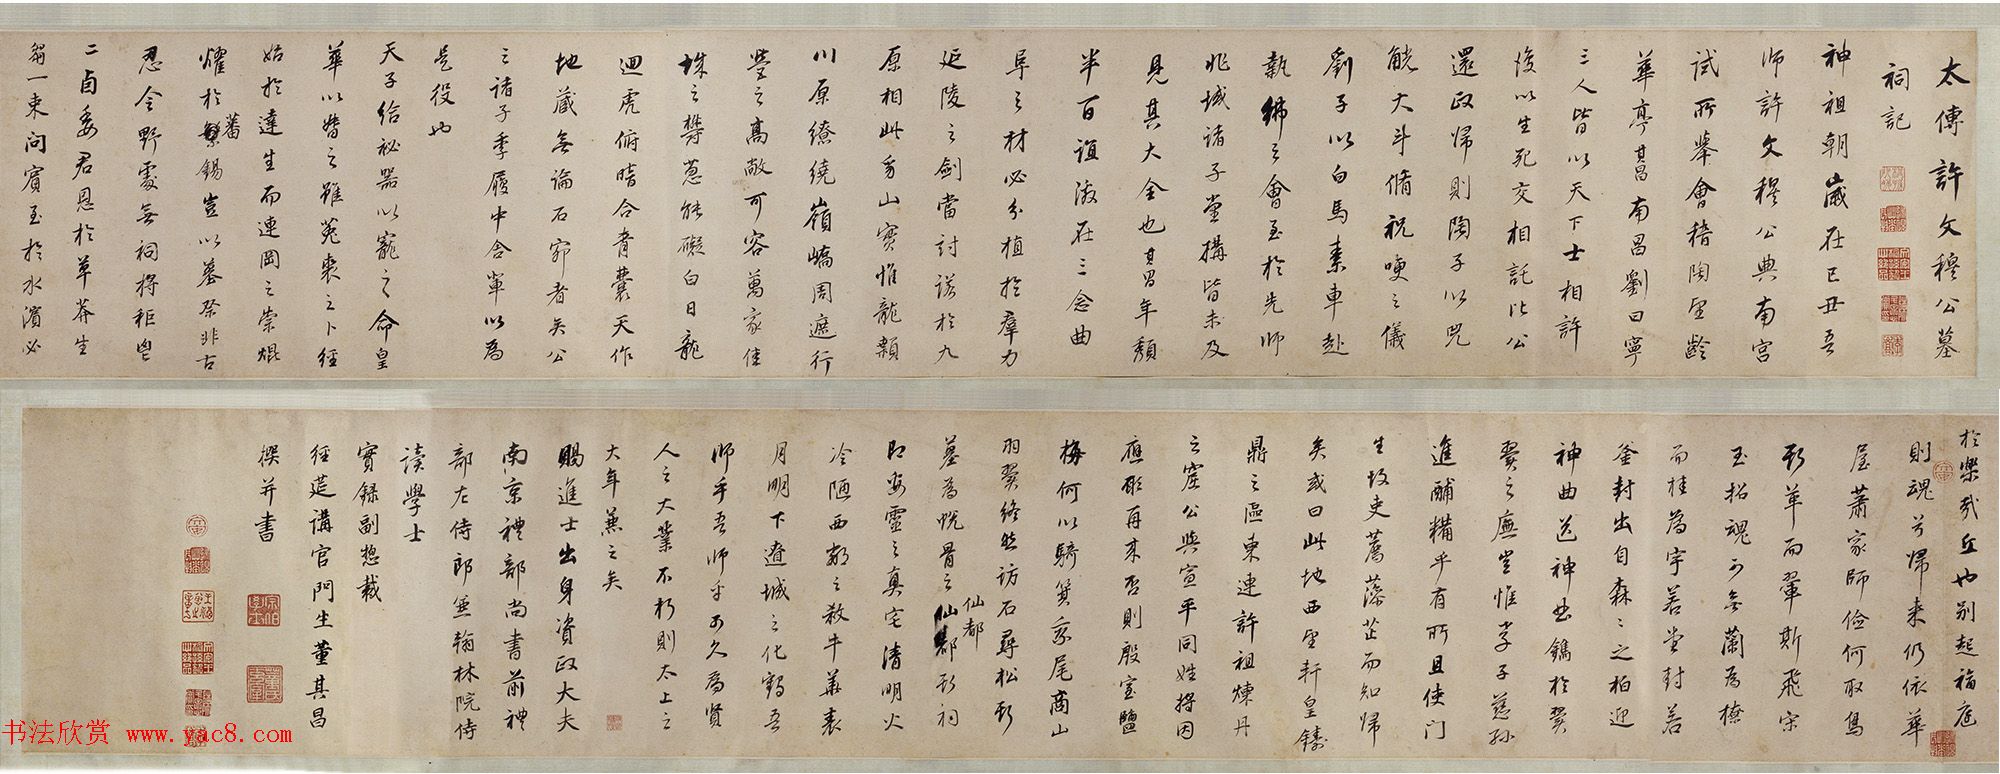 太傅許文穆公墓
祠記
神祖朝歲在己丑吾
師許文穆公典南宮
試所舉會稽陶望齡
華亭其昌南昌劉曰寧
三人皆以天下士相許
後以生死交相託比公
還政歸則陶子以兕
觥大斗脩祝哽之儀
劉子以白馬素車赴
執紼之會至於先師
兆域諸子堂搆皆未及
見其大全也其昌年頹
半百誼激在三念曲
阜之材必分植於羣力
延陵之劍當討諾於九
原相此身山實惟龍顙
川原繚繞嶺嶠周遮行
營之高敞可容萬家佳
城之欝蔥能礙白日龍
迴虎俯暗合青囊天作
地藏無論石窌者矣公
之諸子季履中舍軍以為
是役也
天子給祕器以寵之命皇
華以督之雖菟裘之卜經
始於達生而連岡之崇焜
燿於蕃錫豈以墓祭非古
忍令野處無祠將秬鬯
二卣委君恩於草莽生
芻一束問賓至於水濱必
於樂哉丘也別起福庭
則魂兮歸來仍依華
屋蕭家師儉何取鳥
革而翬斯飛宋
玉招魂可無蘭為橑
而桂為宇若堂封若
釜封出自森森之柏迎
神曲送神曲鐫於翼
翼之廡豈惟孝子慈孫
進酺糒乎有所且使門
生故吏薦藻芷而知歸
矣或曰此地西望軒皇鑄
鼎之區東連許祖煉丹
之窟公與宣平同姓將因
應龍再來否則殷室鹽
梅何以騎箕尾商山
羽翼終然訪石尋松
墓為蛻骨之仙都祠
即妥靈之真宅清明火
冷陋西鄰之殺牛華表
月明下遼城之化鶴吾
師乎吾師乎可久為賢
人之大業不朽則太上之
大年兼之矣
賜進士出身資政大夫
南京禮部尚書前禮
部左侍郎兼翰林院侍
讀學士
實錄副總裁
經筵講官門生董其昌
撰并書
书法欣赏 www.yac8.com